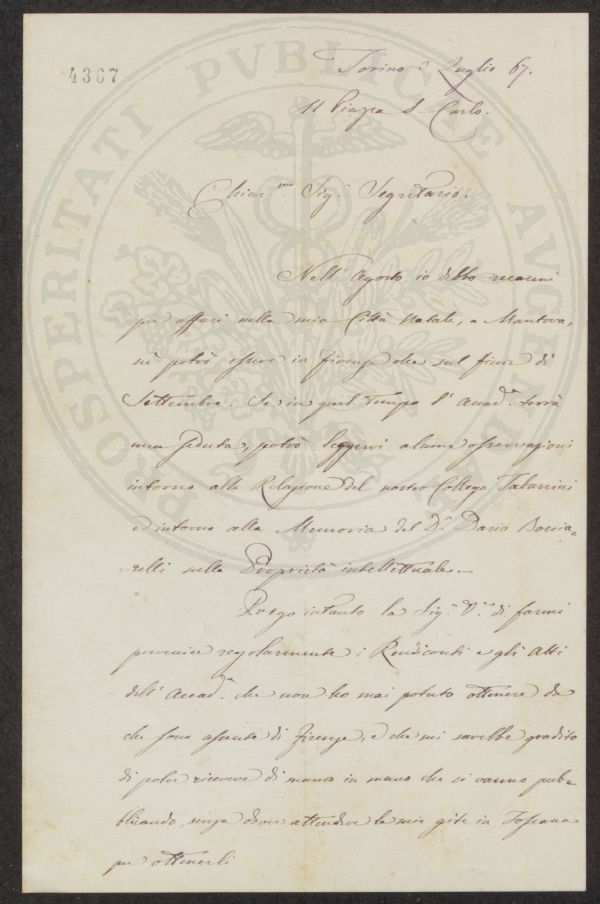 4367
Torino 3 Luglio 67.
11 Piazza S. Carlo.
Chiar.mo Sig.r Segretario.
Nell' Agosto io debbo recarmi
per affari nella mia Città Natale, a Mantova,
nè potrò essere in Firenze che sul finir di
Settembre. Se in quel tempo l' Accad.a terrà
una seduta, potrò leggervi alcune osservazioni
intorno alla Relazione del nostro Collega Tabarrini
e intorno alla Memoria del D.r Dario Boccia-
relli sulla Proprietà intellettuale.
Prego intanto la Sig.a V.a di farmi
pervenire regolarmente i Rendiconti e gli Atti
dell' Accad.a che non ho mai potuto ottenere da
che sono assente di Firenze, e che mi sarebbe gradito
di poter ricevere di mano in mano che si vanno pub-
blicando, senza dover attendere le mie gite in Toscana
per ottenerli
PROSPERITATI PVBLICAE AVGENDAE